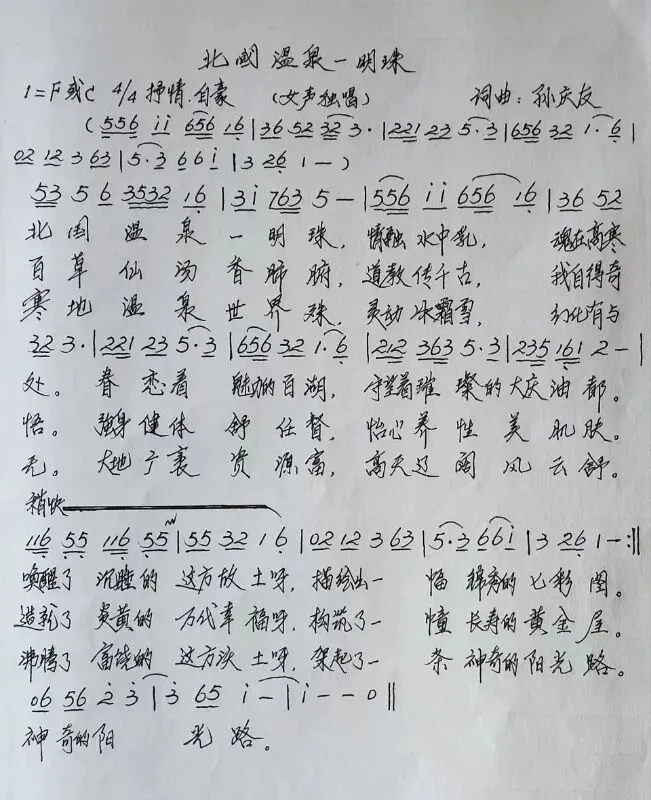 北国温泉一明珠
1=F或C 4/4 抒情.自豪 (女声独唱) 词曲:孙庆友
(556 ii 656 16|36 52 32 3·|221 23 5·3|656 32 1·6|
02 12 3 63|5·3 6 6 i|3 26 1—)
53 5 6 3532 16|3i 763 5—|556 ii 656 16|36 52
北国温泉一明珠,情融水中乳,魂在高寒
百草仙汤香肺腑,道教传千古,我自得奇
寒地温泉世界殊,灵动冰霜雪,幻化有与
32 3·|221 23 5·3|656 32 1·6|212 363 5·3|235 161 2—|
处。眷恋着魅力的百湖,守望着璀璨的大庆油都。
悟。强身健体舒任督,怡心养性美肌肤。
无。大地广袤资源富,高天辽阔风云舒。
稍快
116 55 116 55|55 32 1 6|02 12 3 63|5·3 66i|3 26 1—:||
唤醒了沉睡的这方故土呀,描绘出一幅锦秀的七彩图。
造就了炎黄的万代幸福呀,构筑了一幢长寿的黄金屋。
沸腾了富饶的这方沃土呀,架起了一条神奇的阳光路。
06 56 2 3|3 65 i—|i——0||
神奇的阳光路。